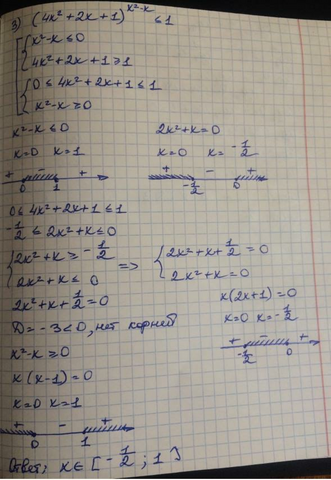 3) (4x²+2x+1)^(x²-x) ≤ 1
x²-x ≤ 0
4x²+2x+1 ≥ 1
0 ≤ 4x²+2x+1 ≤ 1
x²-x ≥ 0
x²-x ≤ 0 2x²+x=0
x=0 x=1 x=0 x=-1/2
+ - + + - +
0 1 -1/2 0
0 ≤ 4x²+2x+1 ≤ 1
-1/2 ≤ 2x²+x ≤ 0
2x²+x ≥ -1/2 => 2x²+x+1/2 = 0
2x²+x ≤ 0 2x²+x=0
2x²+x+1/2=0 x(2x+1)=0
D=-3<0, нет корней x=0 x=-1/2
x²-x ≥ 0 + - +
x(x-1)=0 -1/2 0
x=0 x=1
+ - +
0 1
Ответ: x∈[-1/2; 1]